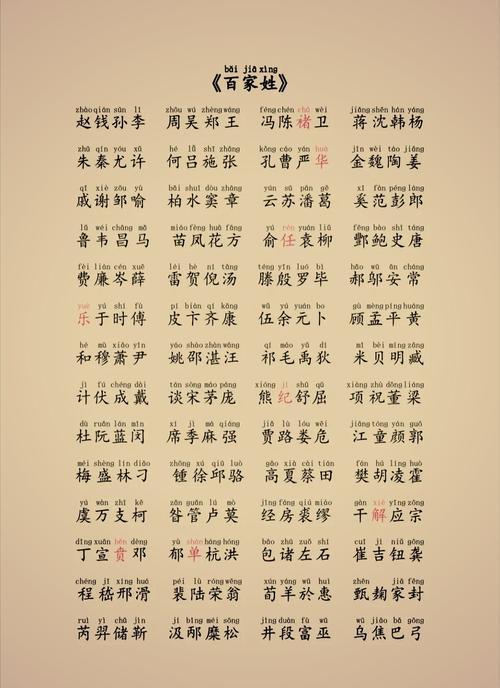 bǎi jiā xìng
《百家姓》
zhào qián sūn lǐ zhōu wú zhèng wáng féng chén chǔ wèi jiǎng shěn hán yáng
赵钱孙李 周吴郑王 冯陈褚卫 蒋沈韩杨
zhū qín yóu xǔ hé lǚ shī zhāng kǒng cáo yán huà jīn wèi táo jiāng
朱秦尤许 何吕施张 孔曹严华 金魏陶姜
qī xiè zōu yù bǎi shuǐ dòu zhāng yún sū pān gě xī fàn péng láng
戚谢邹喻 柏水窦章 云苏潘葛 奚范彭郎
lǔ wéi chāng mǎ miáo fèng huā fāng yú rén yuán liǔ fēng bào shǐ táng
鲁韦昌马 苗凤花方 俞任袁柳 酆鲍史唐
fèi lián cén xuē léi hè ní tāng téng yīn luó bì hǎo wū ān cháng
费廉岑薛 雷贺倪汤 滕殷罗毕 郝邬安常
yuè yú shí fù pí biàn qí kāng wǔ yú yuán bǔ gù mèng píng huáng
乐于时傅 皮卞齐康 伍余元卜 顾孟平黄
hé mù xiāo yǐn yáo shào zhàn wāng qí máo yǔ dí mǐ bèi míng zāng
和穆萧尹 姚邵湛汪 祁毛禹狄 米贝明臧
jì fú chéng dài tán sòng máo páng xióng jǐ shū qū xiàng zhù dǒng liáng
计伏成戴 谈宋茅庞 熊纪舒屈 项祝董梁
dù ruǎn lán mǐn xí jì má qiáng jiǎ lù lóu wēi jiāng tóng yán guō
杜阮蓝闵 席季麻强 贾路娄危 江童颜郭
méi shèng lín diāo zhōng xú qiū luò gāo xià cài tián fán hú líng huò
梅盛林刁 锺徐邱骆 高夏蔡田 樊胡凌霍
yú wàn zhī kē zǎn guǎn lú mò jīng fáng qiú miào gān xiè yīng zōng
虞万支柯 昝管卢莫 经房裘缪 干解应宗
dīng xuān bēn dèng yù shàn háng hóng bāo zhū zuǒ shí cuī jí niǔ gōng
丁宣贲邓 郁单杭洪 包诸左石 崔吉钮龚
chéng jī xíng huá péi lù róng wēng xún yáng yū huì zhēn qū jiā fēng
程嵇邢滑 裴陆荣翁 荀羊於惠 甄麹家封
ruì yì chǔ jìn jí bǐng mí sōng jǐng duàn fù wū wū jiāo bā gōng
芮羿储靳 汲邴糜松 井段富巫 乌焦巴弓